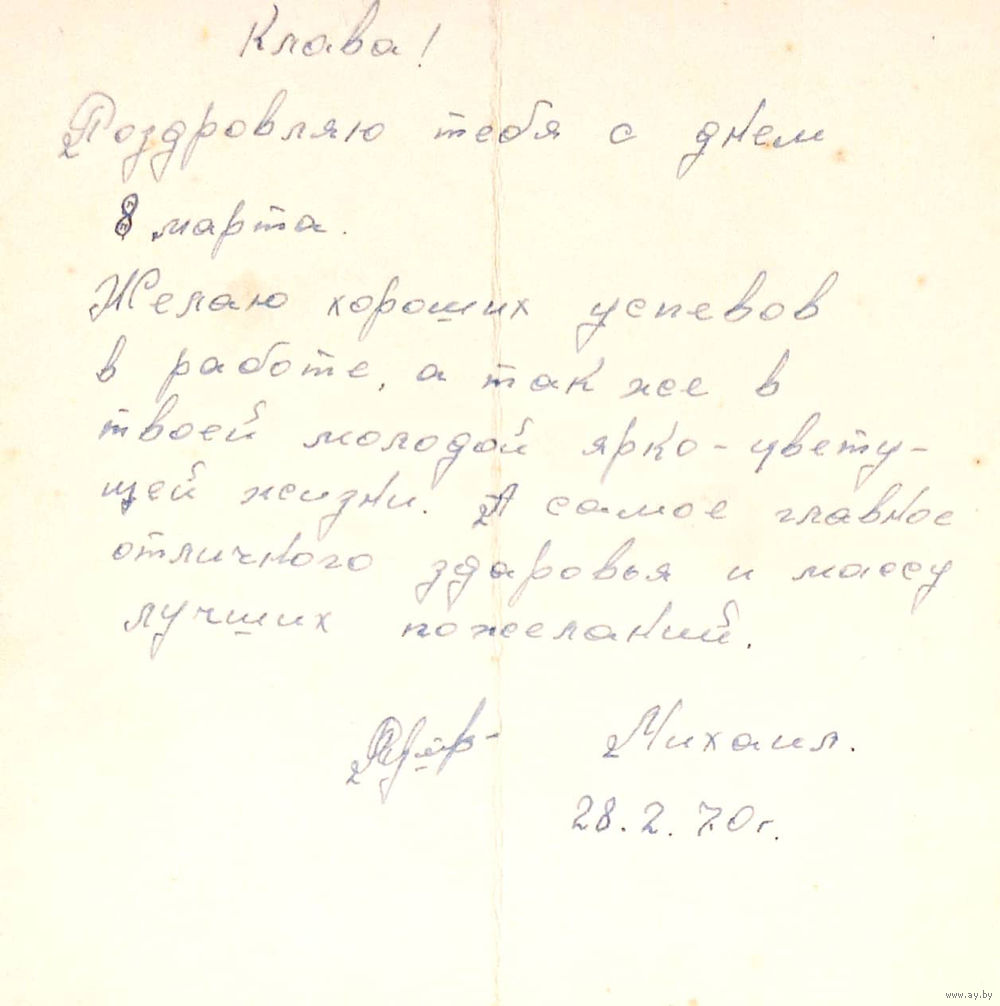 Клава!
Поздровляю тебя с днем
8 марта.
Желаю хороших успевов
в работе, а так же в
твоей молодой ярко-цвету-
щей жизни. А самое главное
отличного здаровья и массу
лучших пожеланий.
Михаил.
28.2.70г.
www.ay.by